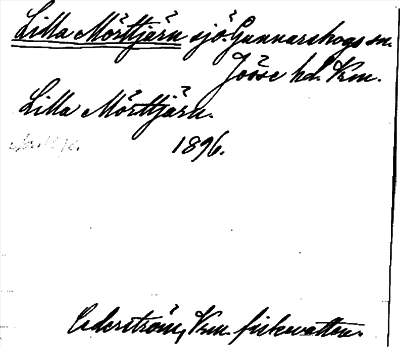 Lilla Mörttjärn sjö. Gunnarskogs sn.
Jösse hd. Vrm.
Lilla Mörttjärn.
1896.
Cederström, Vrm. fiskevatten.